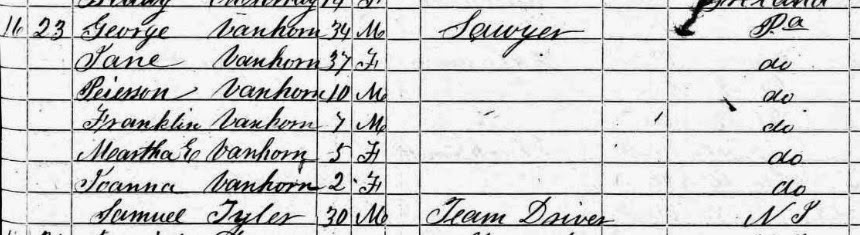 16 23 George Vanhorn 34 M Sawyer Pa
Jane Vanhorn 37 F do
Peierson Vanhorn 10 M do
Franklin Vanhorn 7 M do
Martha E Vanhorn 5 F do
Joanna Vanhorn 2 F do
Samuel Tyler 30 M Team Driver N J